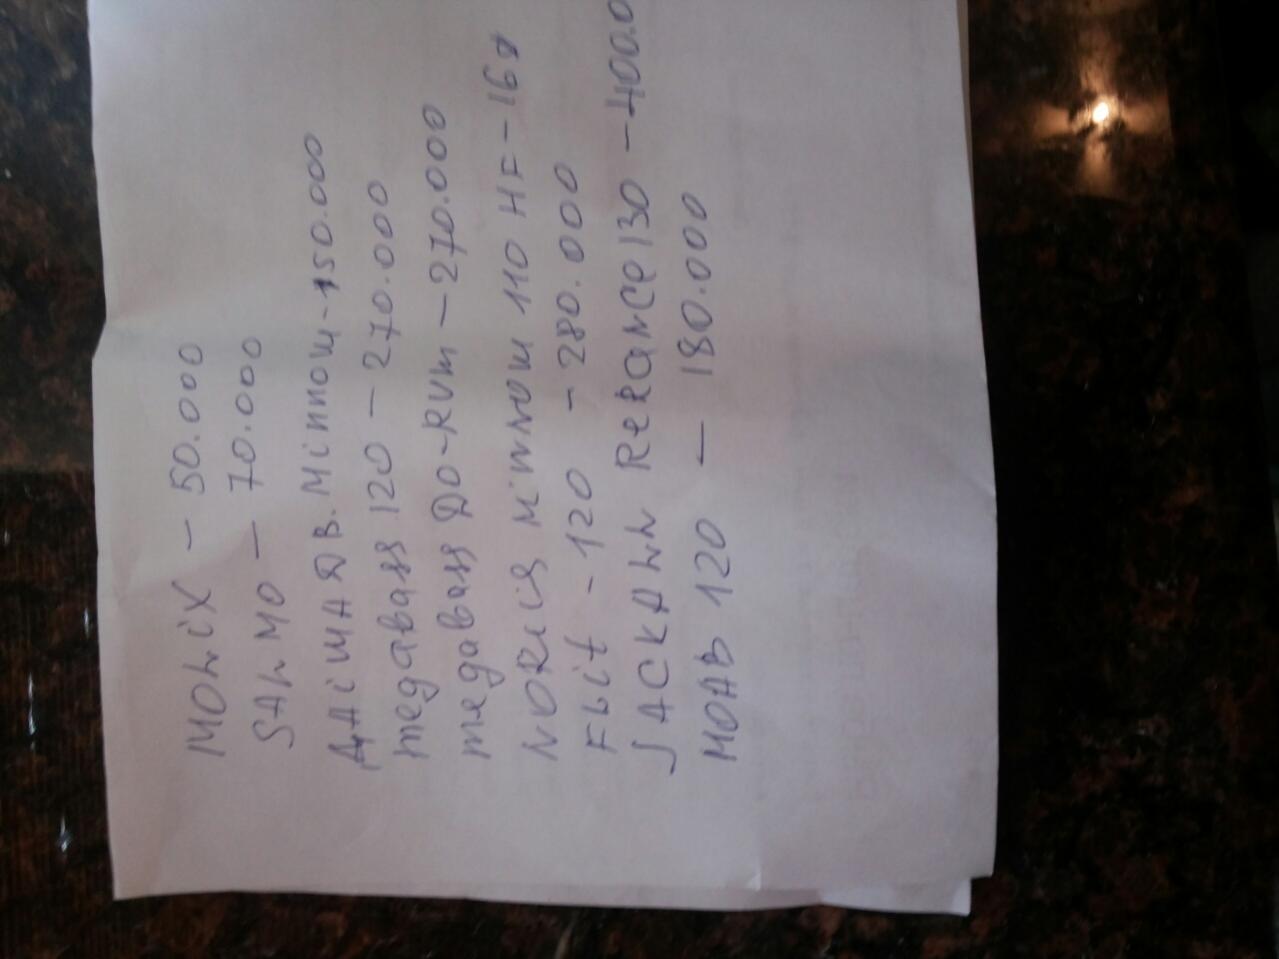 MOLiX - 50.000
SALMO - 70.000
DAiWA DB. Minnow - 150.000
megabass 120 - 270.000
megabass DO-RUM - 270.000
NORiES MiNNOW 110 HF - 16g
FLit - 120 - 280.000
JACKALL RERANCE 130 - 400.0
MOAB 120 - 180.000